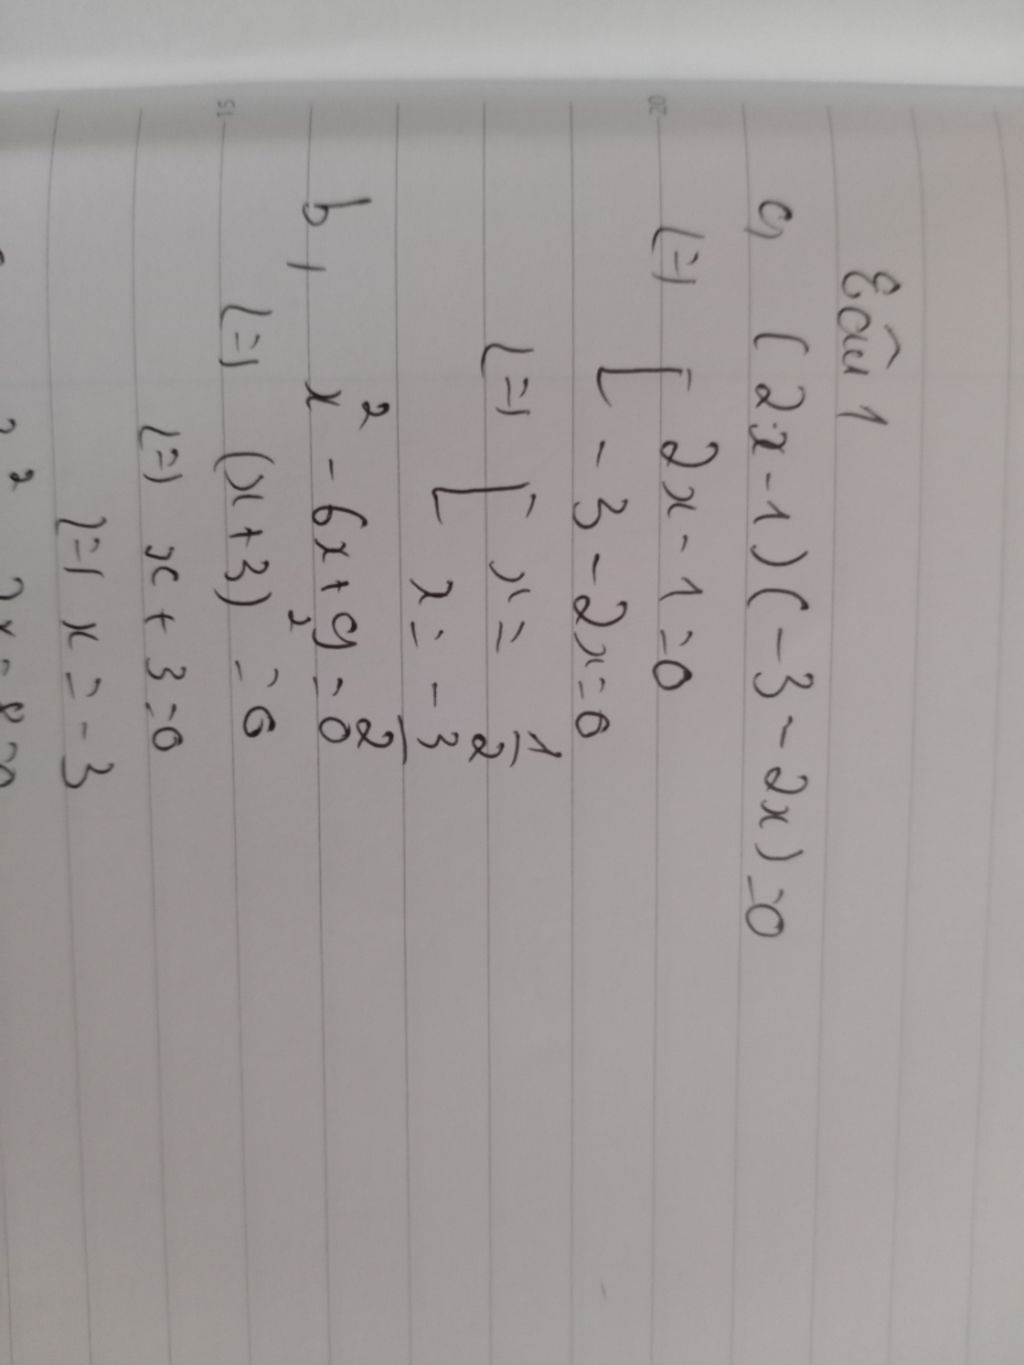 Câu 1
a, (2x-1)(-3-2x)=0
(=) [ 2x-1=0
[ -3-2x=0
(=) [ x= 1/2
[ x= -3/2
b, x² - 6x+9=0
(=) (x+3)² =0
(=) x+3=0
(=) x=-3